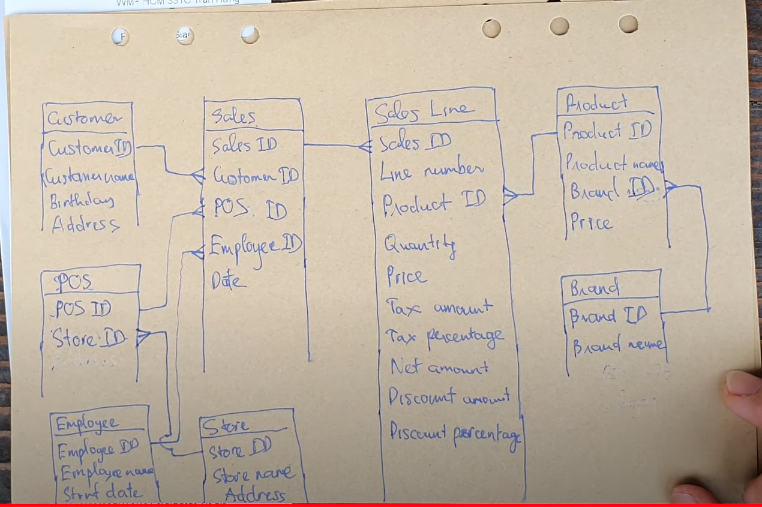 Customer
Customer ID
Customer name
Birthday
Address
Sales
Sales ID
Customer ID
POS ID
Employee ID
Date
Sales Line
Sales ID
Line number
Product ID
Quantity
Price
Tax amount
Tax percentage
Net amount
Discount amount
Discount percentage
Product
Product ID
Product name
Brand ID
Price
POS
POS ID
Store ID
Brand
Brand ID
Brand name
Employee
Employee ID
Employee name
Start date
Store
Store ID
Store name
Address